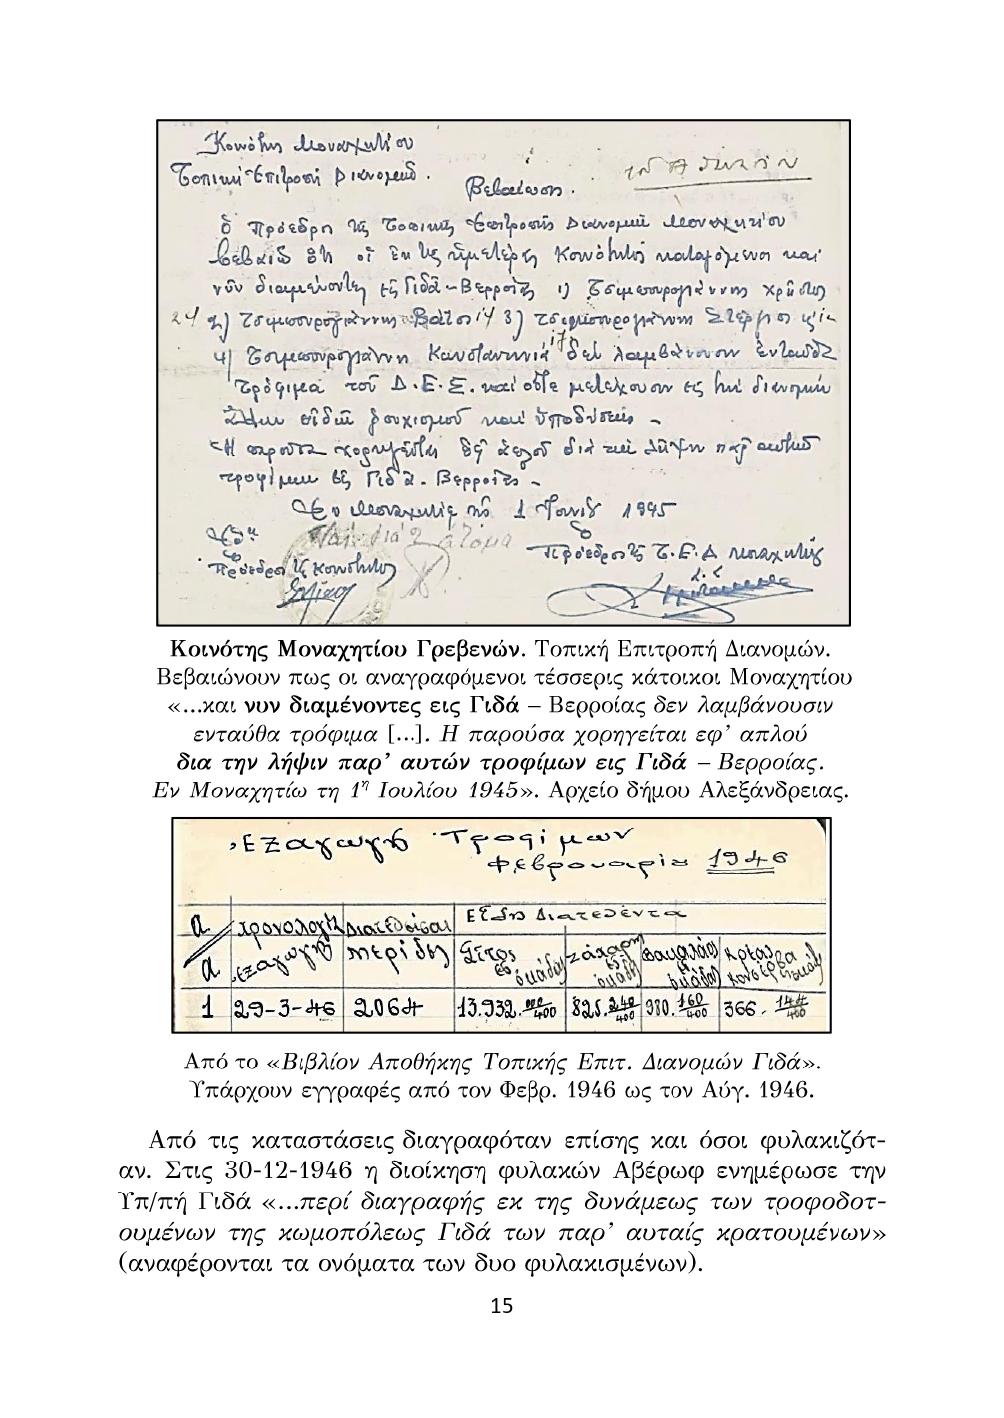 Κοινότης Μοναχητίου
Τοπική Επιτροπή Διανομών.
Βεβαίωσις.
Ὁ Πρόεδρος τῆς Τοπικῆς Ἐπιτροπῆς Διανομῶν Μοναχητίου
βεβαιῶ ὅτι οἱ ἐκ τῆς ἡμετέρας Κοινότητος καταγόμενοι καὶ
νῦν διαμένοντες εἰς Γιδᾶ - Βερροίας 1) Τσιμπουρογιάννης Χρῆστος
2) Τσιμπουρογιάννης 3) Τσιμπουρογιάννης Στέργιος
4) Τσιμπουρογιάννη Κωνσταντινιά δὲν λαμβάνουσιν ἐνταῦθα
Τρόφιμα τοῦ Δ.Ε.Σ. καὶ οὔτε μετέχουσιν εἰς τὴν διανομὴν
εἰδῶν ρουχισμοῦ καὶ ὑποδήσεως -
Ἡ παροῦσα χορηγεῖται ἐφ' ἁπλοῦ διὰ τὴν λῆψιν παρ' αὐτῶν
τροφίμων εἰς Γιδᾶ - Βερροίας -
Ἐν Μοναχητίῳ τῇ 1 Ἰουλίου 1945
διὰ 2 άτομα
Ὁ
Ὁ
Πρόεδρος τῆς Κοινότητος
Πρόεδρος τῆς Τ.Ε.Δ Μοναχητίου
Κοινότης Μοναχητίου Γρεβενών. Τοπική Επιτροπή Διανομών.
Βεβαιώνουν πως οι αναγραφόμενοι τέσσερις κάτοικοι Μοναχητίου
«...και νυν διαμένοντες εις Γιδά – Βερροίας δεν λαμβάνουσιν
ενταύθα τρόφιμα [...]. Η παρούσα χορηγείται εφ’ απλού
δια την λήψιν παρ’ αυτών τροφίμων εις Γιδά – Βερροίας.
Εν Μοναχητίω τη 1η Ιουλίου 1945». Αρχείο δήμου Αλεξάνδρειας.
Ἐξαγωγὴ Τροφίμων
Φεβρουαρίου 1946
Εἴδη Διατεθέντα
α/α χρονολογία ἐξαγωγῆς Διατεθεῖσαι μερίδες Σῖτος εἰς ὀκάδας Ζάχαρη εἰς ὀκάδες Βακαλάος εἰς ὀκάδας Κρέας κονσέρβα
1 29-3-46 2064 13.932. 825.240/400 980.160/400 366.144/400
Από το «Βιβλίον Αποθήκης Τοπικής Επιτ. Διανομών Γιδά».
Υπάρχουν εγγραφές από τον Φεβρ. 1946 ως τον Αύγ. 1946.
Από τις καταστάσεις διαγραφόταν επίσης και όσοι φυλακιζότ-
αν. Στις 30-12-1946 η διοίκηση φυλακών Αβέρωφ ενημέρωσε την
Υπ/πή Γιδά «...περί διαγραφής εκ της δυνάμεως των τροφοδοτ-
ουμένων της κωμοπόλεως Γιδά των παρ’ αυταίς κρατουμένων»
(αναφέρονται τα ονόματα των δυο φυλακισμένων).
15